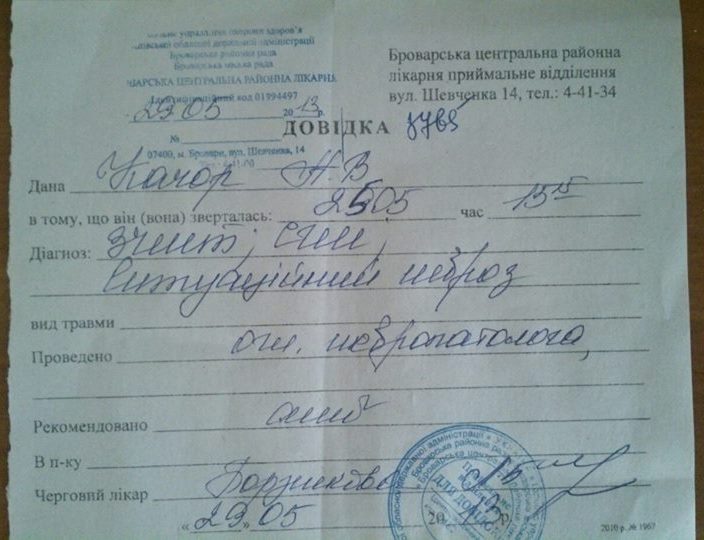 управління охорони здоров'я
обласної державної адміністрації
Броварська районна рада
Броварська міська рада
ЦЕНТРАЛЬНА РАЙОННА ЛІКАРНЯ
Ідентифікаційний код 01994497
29.05 2013 р.
№
07400, м. Бровари, вул. Шевченка, 14
Броварська центральна районна
лікарня приймальне відділення
вул. Шевченка 14, тел.: 4-41-34
ДОВІДКА
Дана Качор Н.В
в тому, що він (вона) зверталась: 29.05 час 15 15
Діагноз:
Ситуаційний невроз
вид травми
Проведено огл. невропатолога,
Рекомендовано
В п-ку
Черговий лікар
«29» 05 20 р.
2010 р. № 1967